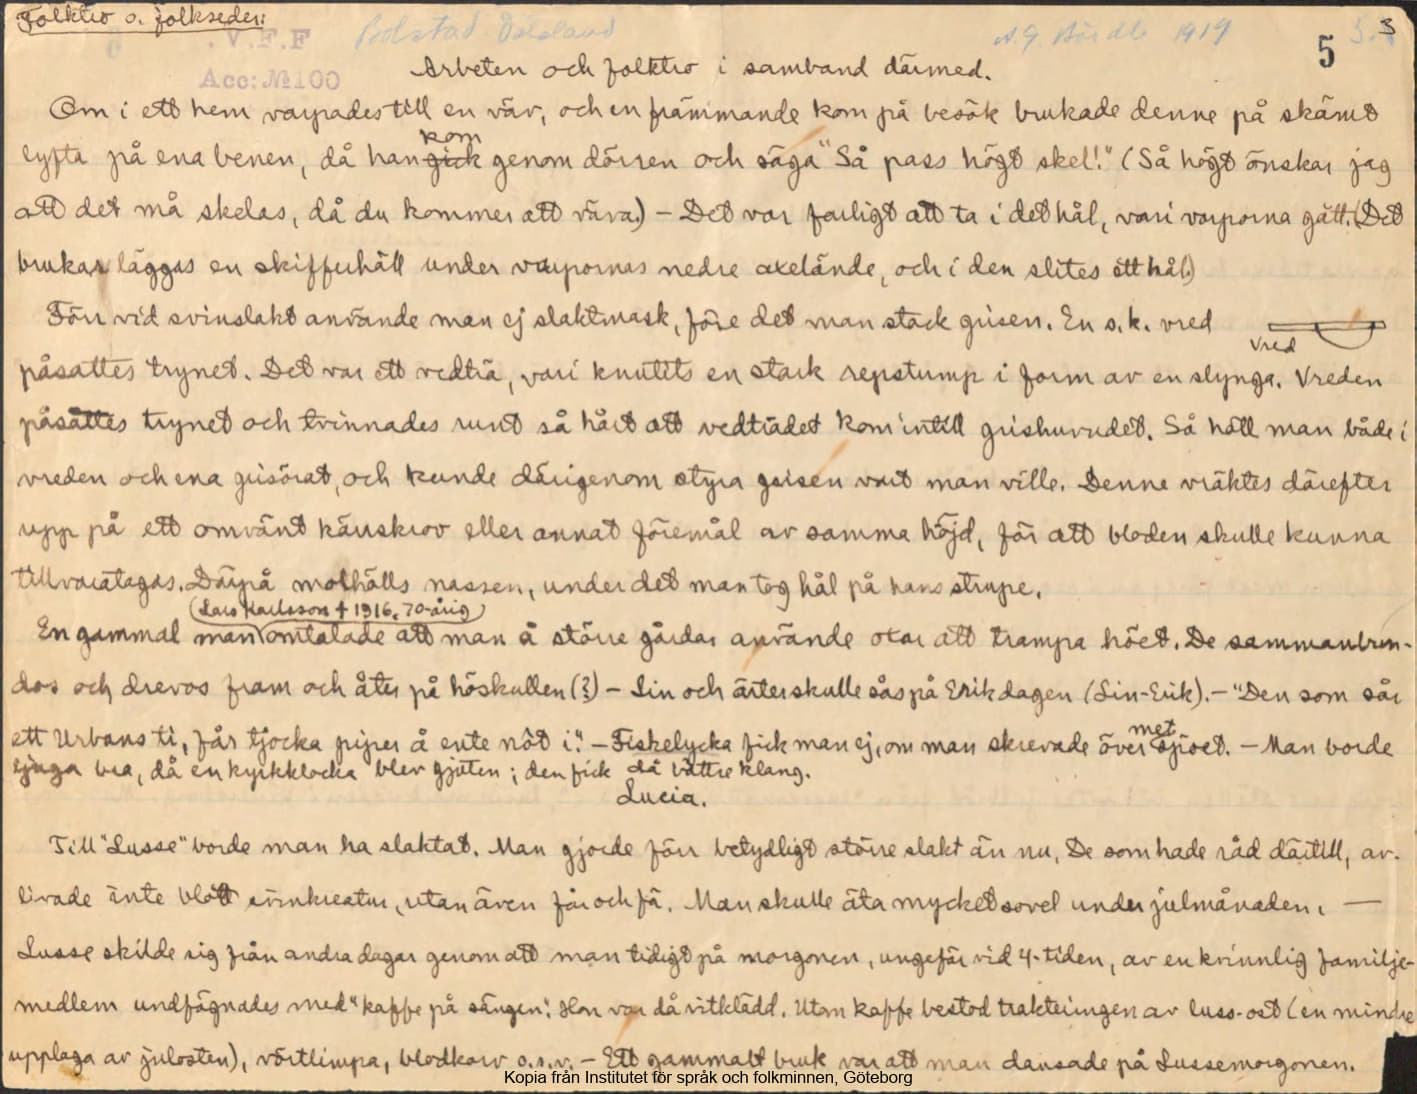 Folktro o. folkseder:
V.F.F
Bolstad Dalsland
1919
5
3
Acc: № 100
Arbeten och folktro i samband därmed.
Om i ett hem varpades till en väv, och en främmande kom på besök brukade denne på skämt
lyfta på ena benen, då han gick kom genom dörren och säga "Så pass högt skel!" (Så högt önskar jag
att det må skelas, då du kommer att väva.) – Det var farligt att ta i det hål, vari varporna gått. (Det
brukar läggas en skifferhäll under varpornas nedre axelände, och i den slites ett hål.)
Förr vid svinslakt använde man ej slaktmask, före det man stack grisen. En s.k. vred
vred
påsattes trynet. Det var ett vedträ, vari knutits en stark repstump i form av en slynga. Vreden
påsattes trynet och tvinnades runt så hårt att vedträdet kom intill grishuvudet. Så höll man både i
vreden och ena grisörat, och kunde därigenom styra grisen vart man ville. Denne vräktes därefter
upp på ett omvänt käuskrov eller annat föremål av samma höjd, för att bloden skulle kunna
tillvaratagas. Därpå mothölls nassen, under det man tog hål på hans strupe.
(Lars Karlsson † 1916, 70-årig)
En gammal man omtalade att man å större gårdar använde oxar att trampa höet. De sammanbun-
dos och drevos fram och åter på höskullen (?) – Lin och ärter skulle sås på Erikdagen (Lin-Erik). – "Den som sår
ett Urbans ti, får tjocka piper å ente nôt i." – Fiskelycka fick man ej, om man skrevade över metspöet. – Man borde
ljuga bra, då en kyrkklocka blev gjuten; den fick då bättre klang.
Lucia.
Till "Lusse" borde man ha slaktat. Man gjorde förr betydligt större slakt än nu. De som hade råd därtill, av-
livade inte blott svinkreatur, utan även får och fä. Man skulle äta mycket sovel under julmånaden. —
Lusse skilde sig från andra dagar genom att man tidigt på morgonen, ungefär vid 4-tiden, av en kvinnlig familje-
medlem undfägnades med "kaffe på sängen". Hon var då vitklädd. Utom kaffe bestod trakteringen av luss-ost (en mindre
upplaga av julosten), vörtlimpa, blodkorv o.s.v. – Ett gammalt bruk var att man dansade på Lussemorgonen.
Kopia från Institutet för språk och folkminnen, Göteborg